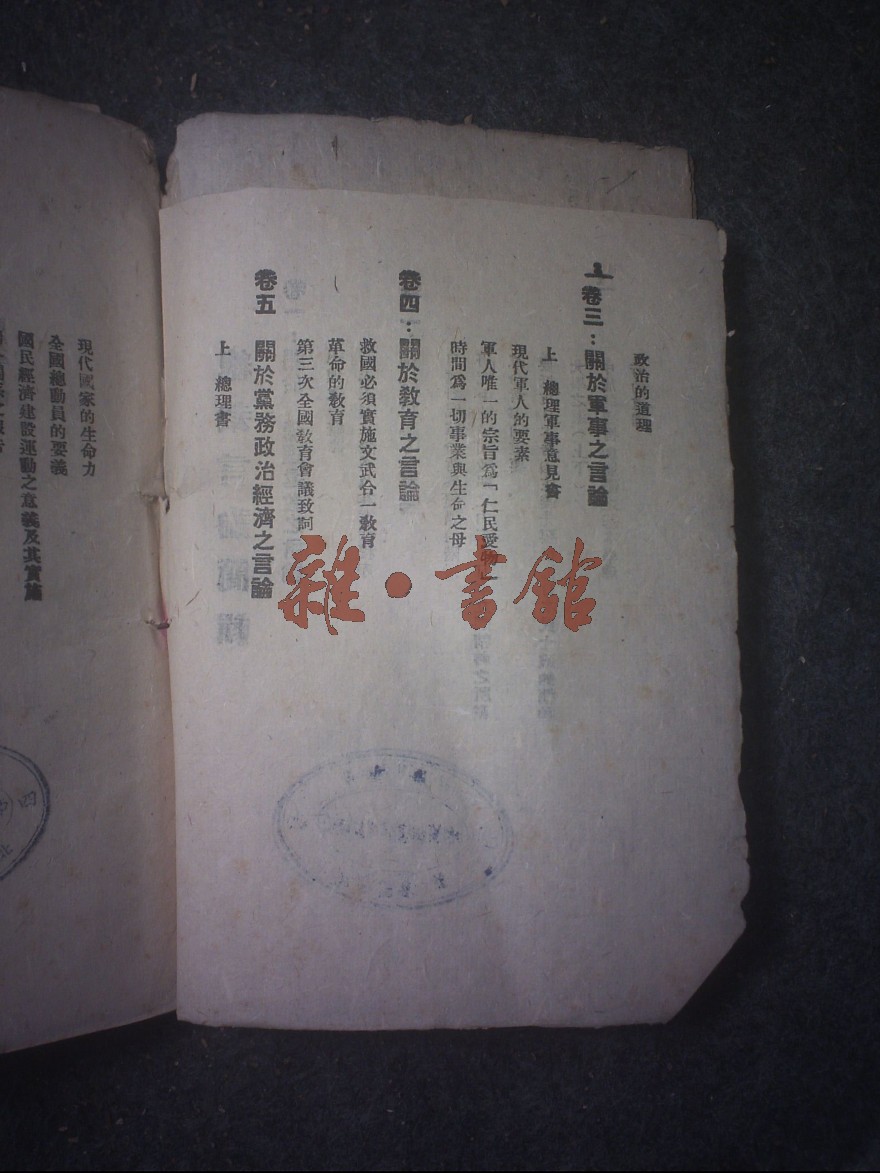 政治的道理
卷三：關於軍事之言論
上 總理軍事意見書
現代軍人的要素
軍人唯一的宗旨爲「仁民愛
時間爲一切事業與生命之母
卷四：關於敎育之言論
救國必須實施文武合一敎育
革命的敎育
第三次全國敎育會議致詞
卷五 關於黨務政治經濟之言論
上 總理書
現代國家的生命力
全國總動員的要義
國民經濟建設運動之意義及其實施
雜·書館